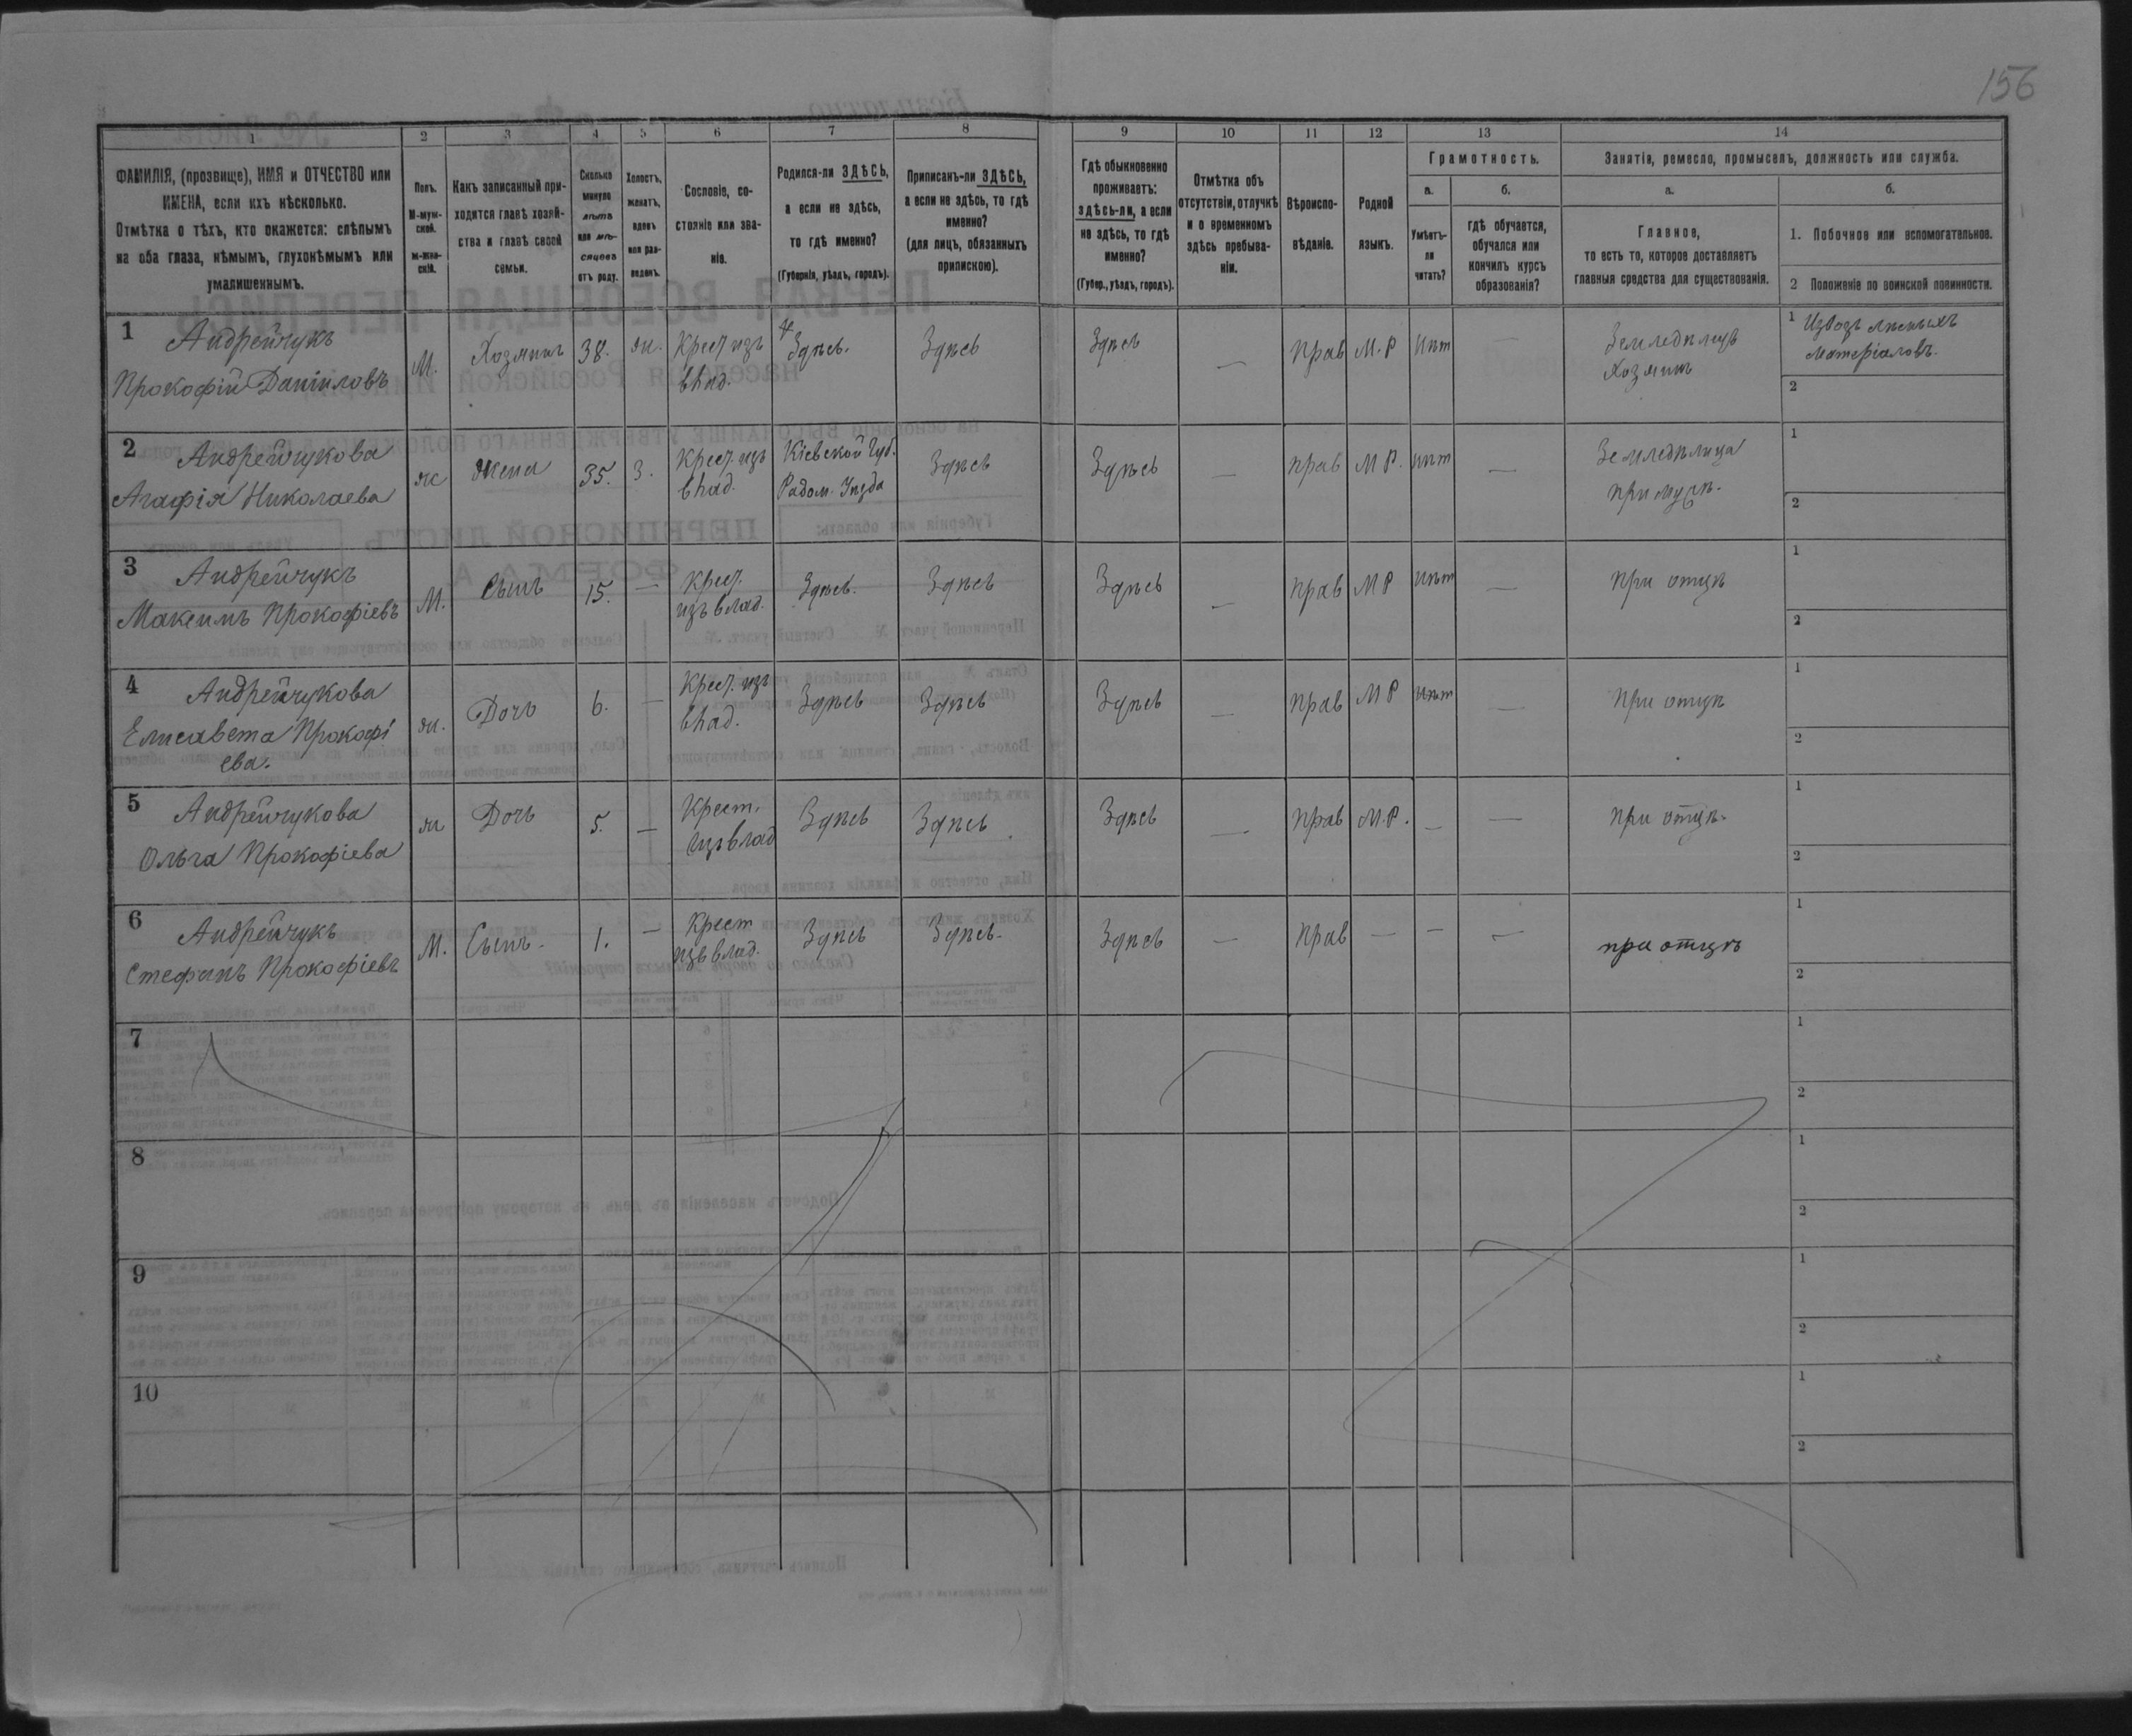 156
1
2
3
4
5
6
7
8
9
10
11
12
13
14
ФАМИЛІЯ, (прозвище), ИМЯ и ОТЧЕСТВО или
ИМЕНА, если ихъ нѣсколько.
Отмѣтка о тѣхъ, кто окажется: слѣпымъ
на оба глаза, нѣмымъ, глухонѣмымъ или
умалишеннымъ.
Полъ.
М-муж-
ской.
ж-жен-
скій.
Какъ записанный при-
ходится главѣ хозяй-
ства и главѣ своей
семьи.
Сколько
минуло
лѣтъ
или мѣ-
сяцевъ
отъ роду.
Холостъ,
женатъ,
вдовъ
или раз-
веденъ.
Сословіе, со-
стояніе или зва-
ніе.
Родился-ли ЗДѢСЬ,
а если не здѣсь,
то гдѣ именно?
(Губернія, уѣздъ, городъ).
Приписанъ-ли ЗДѢСЬ,
а если не здѣсь, то гдѣ
именно?
(для лицъ, обязанныхъ
припискою).
Гдѣ обыкновенно
проживаетъ:
здѣсь-ли, а если
не здѣсь, то гдѣ
именно?
(Губер., уѣздъ, городъ).
Отмѣтка объ
отсутствіи, отлучкѣ
и о временномъ
здѣсь пребыва-
ніи.
Вѣроиспо-
вѣданіе.
Родной
языкъ.
Грамотность.
а.
Умѣетъ-
ли
читать?
б.
гдѣ обучается,
обучался или
кончилъ курсъ
образованія?
Занятія, ремесло, промыселъ, должность или служба.
а.
Главное,
то есть то, которое доставляетъ
главныя средства для существованія.
б.
1. Побочное или вспомогательное.
2 Положеніе по воинской повинности.
1 Андрейчукъ
Прокофій Даніиловъ
М.
Хозяинъ
38.
ж.
Крест. изъ
влад.
Здѣсь.
Здѣсь
Здѣсь
—
Прав
М.Р
Нѣт
—
Земледѣлецъ
Хозяинъ
1 Извозъ лѣсныхъ
матеріаловъ.
2
2 Андрейчукова
Агафія Николаева
ж
жена
35.
З.
Крест. изъ
влад.
Кіевской Губ.
Радом. Уѣзда
Здѣсь
Здѣсь
—
прав
М Р.
нѣт
—
Земледѣлица
при мужѣ.
1
2
3 Андрейчукъ
Максимъ Прокофіевъ
М.
Сынъ
15.
—
Крест.
изъ влад.
Здѣсь.
Здѣсь
Здѣсь
—
прав
М Р
Нѣт
—
При отцѣ
1
2
4 Андрейчукова
Елисавета Прокофі
ева.
ж.
Дочь
6.
—
Крест. изъ
влад.
Здѣсь
Здѣсь
Здѣсь
—
прав
М Р
Нѣт
—
При отцѣ
1
2
5 Андрейчукова
Ольга Прокофіева
ж
Дочь
5.
—
Крест.
изъ влад
Здѣсь
Здѣсь.
Здѣсь
—
прав
М.Р.
—
—
при отцѣ.
1
2
6 Андрейчукъ
Стефанъ Прокофіевъ
М.
Сынъ.
1.
—
Крест
изъ влад.
Здѣсь
Здѣсь.
Здѣсь
—
Прав
—
—
—
при отцѣ
1
2
7
1
2
8
1
2
9
1
2
10
1
2